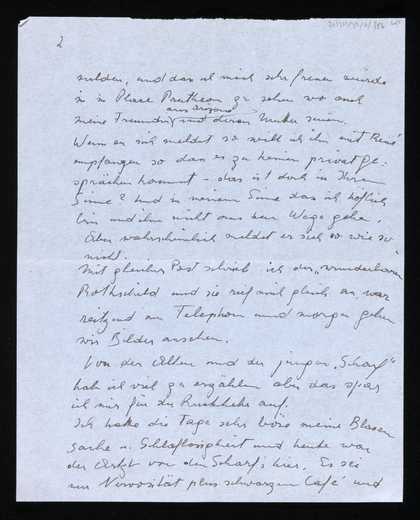 2
melden, und dass ich mich sehr freuen würde
in Place Pantheon zu sehen wo auch
aus
meine Freundin und deren Mutter seien.
Wenn er sich meldet so will ich ihn mit René
empfangen so dass es zu keinen privat Ge-
sprächen kommt – das ist doch in Ihrem
Sinne? Und in meinem Sinne dass ich höflich
bin und ihm nicht aus dem Wege gehe.
Aber wahrscheinlich meldet er sich so wie so
nicht.
Mit gleicher Post schrieb ich der „wunderbaren
Rothschild und sie rief mich gleich an, war
reizend am Telephon und morgen gehen
wir Bilder ansehen.
Von der Alten und der jungen „Scharf"
hab ich viel zu erzählen aber das spar
ich mir für die Rückkehr auf.
Ich hatte die Tage sehr böse meine Blasen
sache u. Schlaflosigkeit und heute war
der Arzt von den Scharf's hier. Es sei
nur Nervosität plus schwarzen Café und